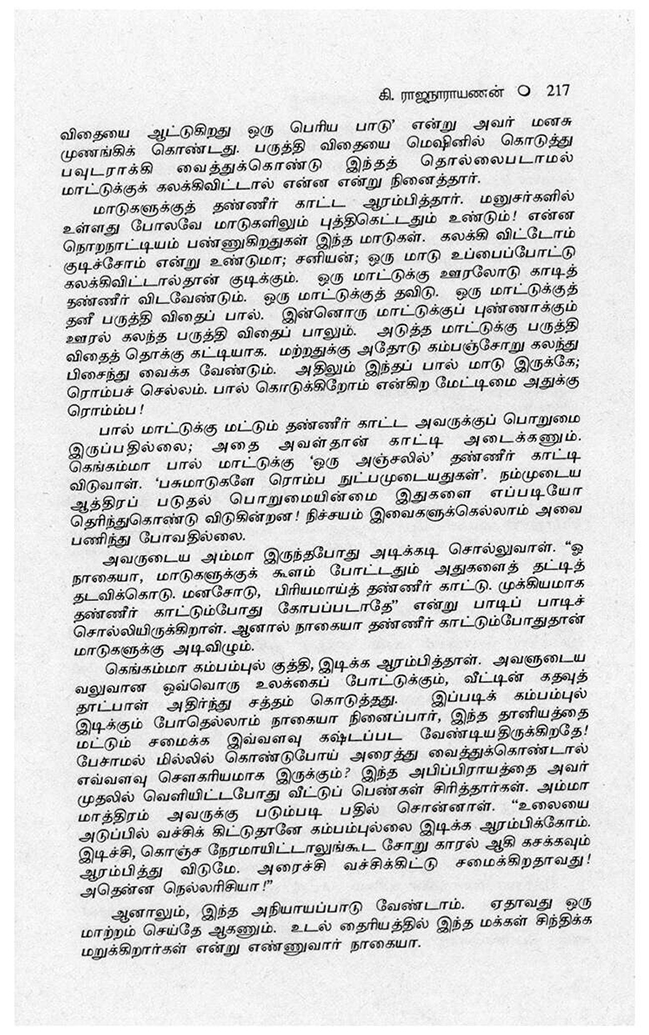 கி. ராஜநாராயணன் ❍ 217
விதையை ஆட்டுகிறது ஒரு பெரிய பாடு' என்று அவர் மனசு
முணங்கிக் கொண்டது. பருத்தி விதையை மெஷினில் கொடுத்து
பவுடராக்கி வைத்துக்கொண்டு இந்தத் தொல்லைபடாமல்
மாட்டுக்குக் கலக்கிவிட்டால் என்ன என்று நினைத்தார்.
மாடுகளுக்குத் தண்ணீர் காட்ட ஆரம்பித்தார். மனுசர்களில்
உள்ளது போலவே மாடுகளிலும் புத்திகெட்டதும் உண்டும்! என்ன
நொறநாட்டியம் பண்ணுகிறதுகள் இந்த மாடுகள். கலக்கி விட்டோம்
குடிச்சோம் என்று உண்டுமா; சனியன்; ஒரு மாடு உப்பைப்போட்டு
கலக்கிவிட்டால்தான் குடிக்கும். ஒரு மாட்டுக்கு ஊரலோடு காடித்
தண்ணீர் விடவேண்டும். ஒரு மாட்டுக்குத் தவிடு. ஒரு மாட்டுக்குத்
தனீ பருத்தி விதைப் பால். இன்னொரு மாட்டுக்குப் புண்ணாக்கும்
ஊரல் கலந்த பருத்தி விதைப் பாலும். அடுத்த மாட்டுக்கு பருத்தி
விதைத் தொக்கு கட்டியாக. மற்றதுக்கு அதோடு கம்பஞ்சோறு கலந்து
பிசைந்து வைக்க வேண்டும். அதிலும் இந்தப் பால் மாடு இருக்கே;
ரொம்பச் செல்லம். பால் கொடுக்கிறோம் என்கிற மேட்டிமை அதுக்கு
ரொம்ம்ப!
பால் மாட்டுக்கு மட்டும் தண்ணீர் காட்ட அவருக்குப் பொறுமை
இருப்பதில்லை; அதை அவள்தான் காட்டி அடைக்கணும்.
கெங்கம்மா பால் மாட்டுக்கு 'ஒரு அஞ்சலில்' தண்ணீர் காட்டி
விடுவாள். 'பசுமாடுகளே ரொம்ப நுட்பமுடையதுகள்'. நம்முடைய
ஆத்திரப் படுதல் பொறுமையின்மை இதுகளை எப்படியோ
தெரிந்துகொண்டு விடுகின்றன! நிச்சயம் இவைகளுக்கெல்லாம் அவை
பணிந்து போவதில்லை.
அவருடைய அம்மா இருந்தபோது அடிக்கடி சொல்லுவாள். "ஓ
நாகையா, மாடுகளுக்குக் கூளம் போட்டதும் அதுகளைத் தட்டித்
தடவிக்கொடு. மனசோடு, பிரியமாய்த் தண்ணீர் காட்டு. முக்கியமாக
தண்ணீர் காட்டும்போது கோபப்படாதே" என்று பாடிப் பாடிச்
சொல்லியிருக்கிறாள். ஆனால் நாகையா தண்ணீர் காட்டும்போதுதான்
மாடுகளுக்கு அடிவிழும்.
கெங்கம்மா கம்பம்புல் குத்தி, இடிக்க ஆரம்பித்தாள். அவளுடைய
வலுவான ஒவ்வொரு உலக்கைப் போட்டுக்கும், வீட்டின் கதவுத்
தாட்பாள் அதிர்ந்து சத்தம் கொடுத்தது. இப்படிக் கம்பம்புல்
இடிக்கும் போதெல்லாம் நாகையா நினைப்பார், இந்த தானியத்தை
மட்டும் சமைக்க இவ்வளவு கஷ்டப்பட வேண்டியதிருக்கிறதே!
பேசாமல் மில்லில் கொண்டுபோய் அரைத்து வைத்துக்கொண்டால்
எவ்வளவு சௌகரியமாக இருக்கும்? இந்த அபிப்பிராயத்தை அவர்
முதலில் வெளியிட்டபோது வீட்டுப் பெண்கள் சிரித்தார்கள். அம்மா
மாத்திரம் அவருக்கு படும்படி பதில் சொன்னாள். "உலையை
அடுப்பில் வச்சிக் கிட்டுதானே கம்பம்புல்லை இடிக்க ஆரம்பிக்கோம்.
இடிச்சி, கொஞ்ச நேரமாயிட்டாலுங்கூட சோறு காரல் ஆகி கசக்கவும்
ஆரம்பித்து விடுமே. அரைச்சி வச்சிக்கிட்டு சமைக்கிறதாவது!
அதென்ன நெல்லரிசியா!"
ஆனாலும், இந்த அநியாயப்பாடு வேண்டாம். ஏதாவது ஒரு
மாற்றம் செய்தே ஆகணும். உடல் தைரியத்தில் இந்த மக்கள் சிந்திக்க
மறுக்கிறார்கள் என்று எண்ணுவார் நாகையா.